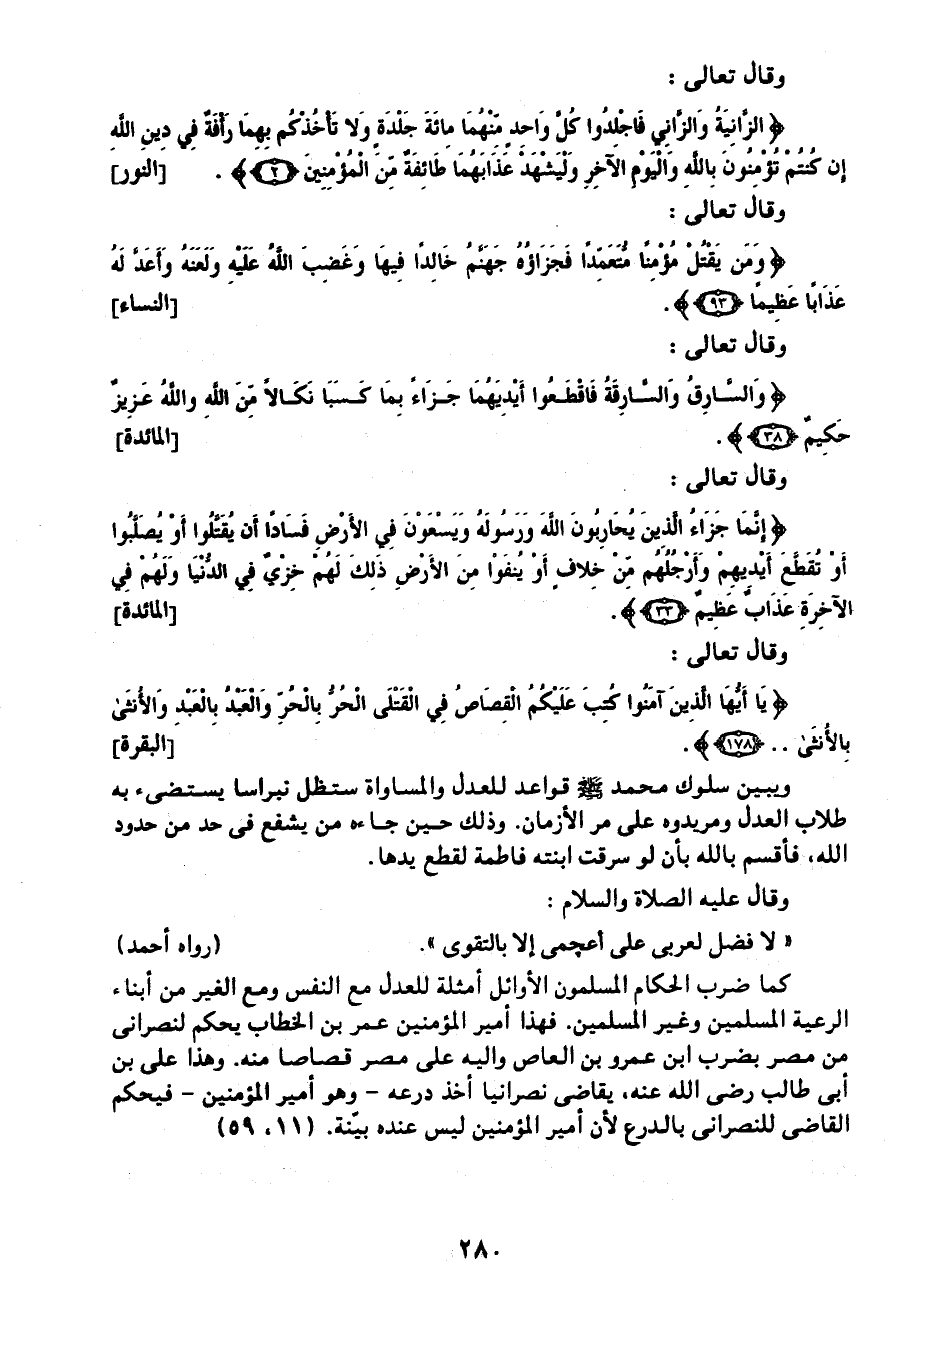 وقال تعالى :
﴿ الزَّانِيَةُ وَالزَّانِي فَاجْلِدُوا كُلَّ وَاحِدٍ مِّنْهُمَا مِائَةَ جَلْدَةٍ وَلا تَأْخُذْكُم بِهِمَا رَأْفَةٌ فِي دِينِ اللَّهِ
إِن كُنتُمْ تُؤْمِنُونَ بِاللَّهِ وَالْيَوْمِ الآخِرِ وَلْيَشْهَدْ عَذَابَهُمَا طَائِفَةٌ مِّنَ الْمُؤْمِنِينَ ﴿٢﴾ ﴾ . [النور]
وقال تعالى :
﴿ وَمَن يَقْتُلْ مُؤْمِنًا مُّتَعَمِّدًا فَجَزَاؤُهُ جَهَنَّمُ خَالِدًا فِيهَا وَغَضِبَ اللَّهُ عَلَيْهِ وَلَعَنَهُ وَأَعَدَّ لَهُ
عَذَابًا عَظِيمًا ﴿٩٣﴾ ﴾ . [النساء]
وقال تعالى :
﴿ وَالسَّارِقُ وَالسَّارِقَةُ فَاقْطَعُوا أَيْدِيَهُمَا جَزَاءً بِمَا كَسَبَا نَكَالاً مِّنَ اللَّهِ وَاللَّهُ عَزِيزٌ
حَكِيمٌ ﴿٣٨﴾ ﴾ . [المائدة]
وقال تعالى :
﴿ إِنَّمَا جَزَاءُ الَّذِينَ يُحَارِبُونَ اللَّهَ وَرَسُولَهُ وَيَسْعَوْنَ فِي الأَرْضِ فَسَادًا أَن يُقَتَّلُوا أَوْ يُصَلَّبُوا
أَوْ تُقَطَّعَ أَيْدِيهِمْ وَأَرْجُلُهُم مِّنْ خِلافٍ أَوْ يُنفَوْا مِنَ الأَرْضِ ذَلِكَ لَهُمْ خِزْيٌ فِي الدُّنْيَا وَلَهُمْ فِي
الآخِرَةِ عَذَابٌ عَظِيمٌ ﴿٣٣﴾ ﴾ . [المائدة]
وقال تعالى :
﴿ يَا أَيُّهَا الَّذِينَ آمَنُوا كُتِبَ عَلَيْكُمُ الْقِصَاصُ فِي الْقَتْلَى الْحُرُّ بِالْحُرِّ وَالْعَبْدُ بِالْعَبْدِ وَالأُنثَىٰ
بِالأُنثَىٰ .. ﴿١٧٨﴾ ﴾ . [البقرة]
ويبين سلوك محمد ﷺ قواعد للعدل والمساواة ستظل نبراسا يستضىء به
طلاب العدل ومريدوه على مر الأزمان. وذلك حين جاءه من يشفع فى حد من حدود
الله، فأقسم بالله بأن لو سرقت ابنته فاطمة لقطع يدها.
وقال عليه الصلاة والسلام :
« لا فضل لعربى على أعچمى إلا بالتقوى ». (رواه أحمد)
كما ضرب الحكام المسلمون الأوائل أمثلة للعدل مع النفس ومع الغير من أبناء
الرعية المسلمين وغير المسلمين. فهذا أمير المؤمنين عمر بن الخطاب يحكم لنصرانى
من مصر بضرب ابن عمرو بن العاص واليه على مصر قصاصا منه. وهذا على بن
أبى طالب رضى الله عنه، يقاضى نصرانيا أخذ درعه - وهو أمير المؤمنين - فيحكم
القاضى للنصرانى بالدرع لأن أمير المؤمنين ليس عنده بيّنة. (١١، ٥٩)
٢٨٠